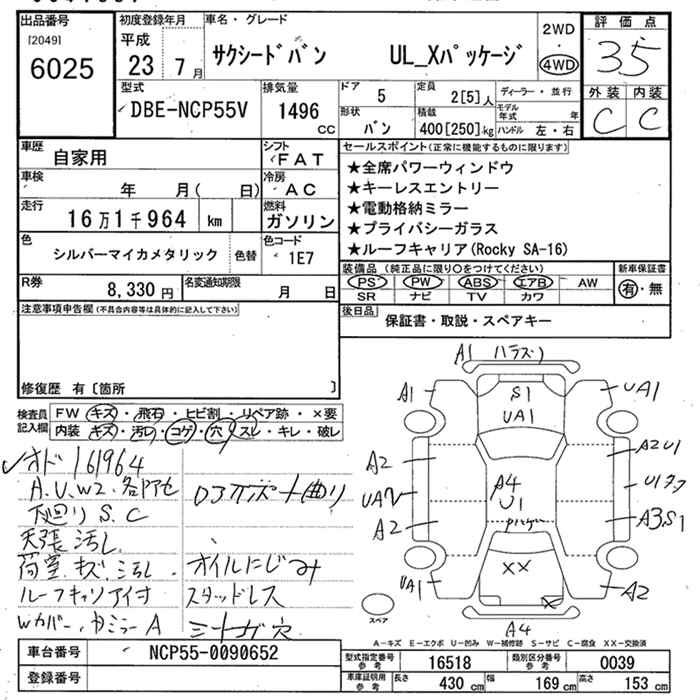 出品番号 初度登録年月 車名・グレード 2WD 評価点
[2049] 平成 4WD
6025 23年 7月 サクシードバン UL_Xパッケージ 35
型式 排気量 ドア 5 定員 2[5]人 ディーラー・並行 外装 内装
DBE-NCP55V 1496cc 形状 バン 積載 400[250]kg モデル年式 年 C C
ハンドル 左・右
車歴 自家用 シフト FAT セールスポイント(正常に機能するものに限ります)
車検 年 月( 日) 冷房 AC ★全席パワーウィンドウ
★キーレスエントリー
走行 16万1千964 km 燃料 ガソリン ★電動格納ミラー
★プライバシーガラス
色 シルバーマイカメタリック 色替 色コード 1E7 ★ルーフキャリア(Rocky SA-16)
R券 8,330円 名変通知期限 月 日 装備品(純正品に限り○をつけてください) 新車保証書
PS PW ABS エアB AW 有・無
SR ナビ TV カワ
注意事項申告欄(不具合内容等は具体的に記入して下さい) 後日品 保証書・取説・スペアキー
修復歴 有〔箇所 〕
検査員記入欄 FW キズ・飛石・ヒビ割・リペア跡・×要
内装 キズ・汚れ・コゲ・穴・スレ・キレ・破レ
オド161964
A.U.W2.各所色 D3ポート曲り
下廻りS.C
天張汚し
荷室キズ汚し オイルにじみ
ルーフキャリア付 スタッドレス
Wカバー.ミラーA シートガ穴
A1
A1 S1 UA1
UA1
A2 A2U1
A4
U1 U1
A2 A3.S1
XX
UA1 X A2
スペア A4
A-キズ E-エクボ U-凹み W-補修跡 S-サビ C-腐食 XX-交換済
車台番号 NCP55-0090652 型式指定番号 参考 16518 類別区分番号 参考 0039
登録番号 車庫証明用 参考 長さ 430cm 幅 169cm 高さ 153cm